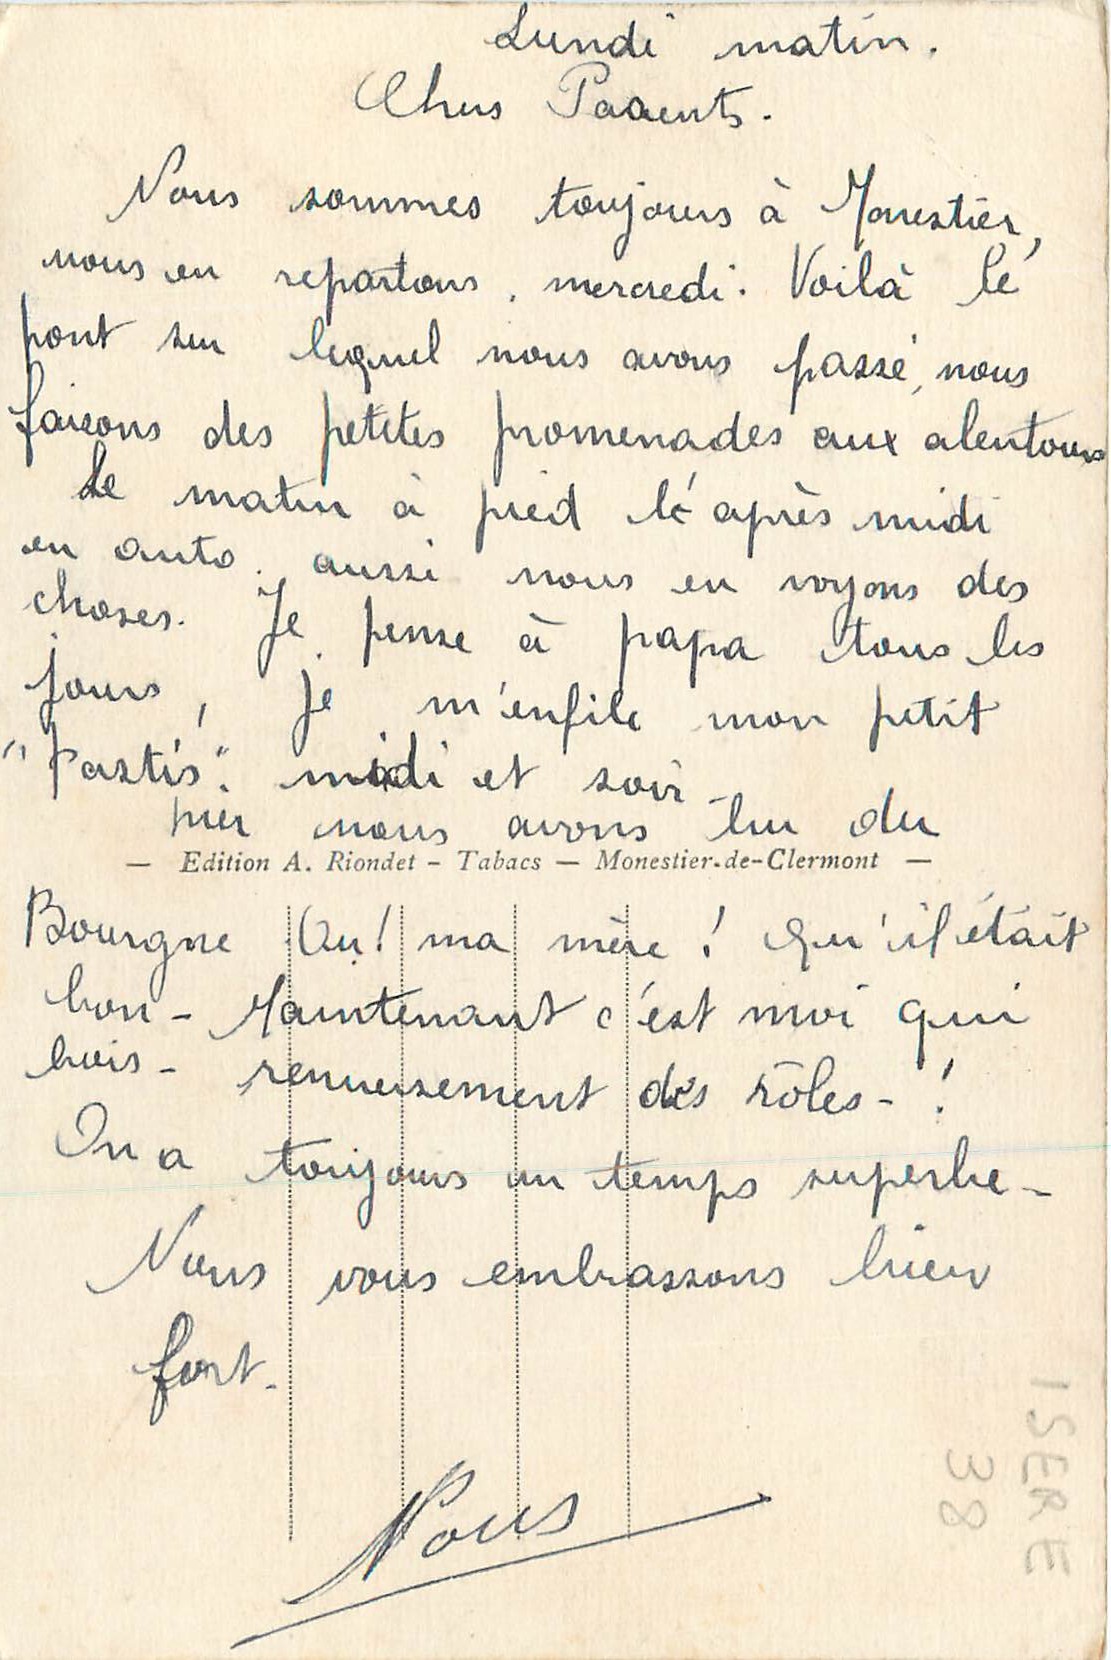 Lundi matin.
Chers Parents.
Nous sommes toujours à Monestier,
nous en repartons, mercredi. Voilà le
pont sur lequel nous avons passé, nous
faisons des petites promenades aux alentours
Le matin à pied l'après midi
en auto. aussi nous en voyons des
choses. Je pense à papa tous les
jours, je m'enfile mon petit
"Pastis". midi et soir -
hier nous avons bu du
— Edition A. Riondet - Tabacs — Monestier-de-Clermont —
Bourgne Ou! ma mère! qu'il était
bon - Maintenant c'est moi qui
bois - renversement des rôles - !
On a toujours un temps superbe -
Nous vous embrassons bien
fort.
Nous
ISERE
38